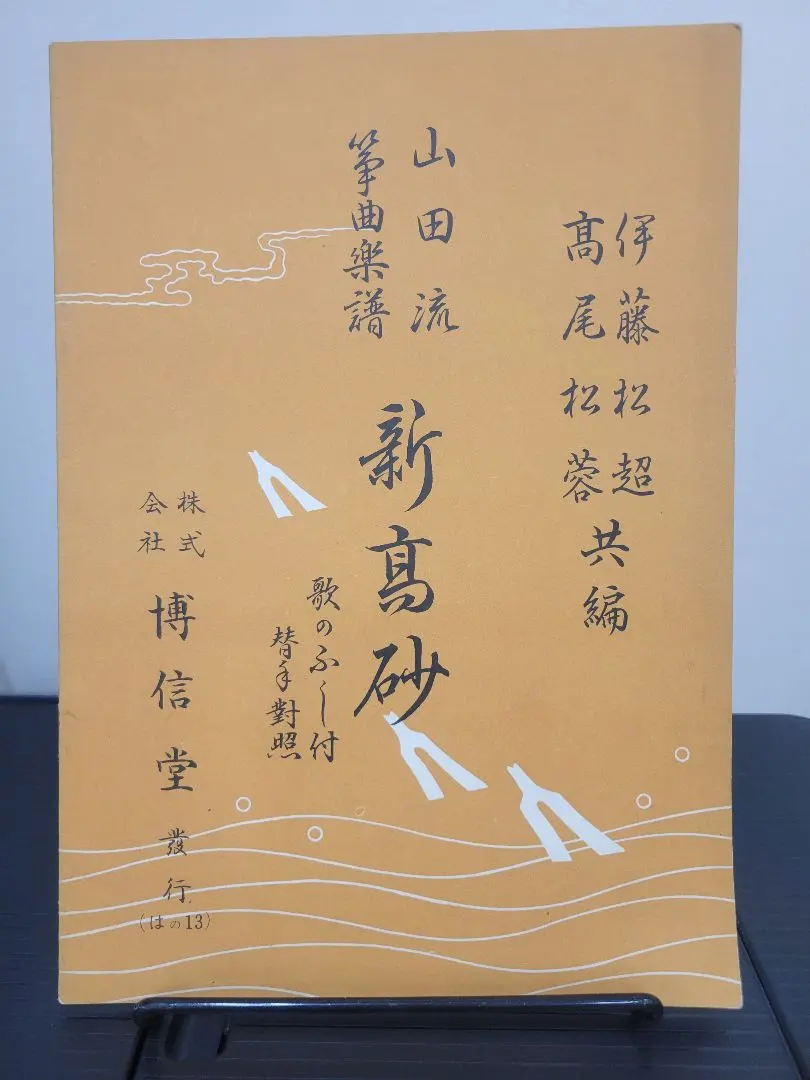 伊藤松超
髙尾松蓉
共編
山田流
箏曲樂譜
新髙砂
歌のふし付
替手對照
株式
会社
博信堂
發行
(はの13)